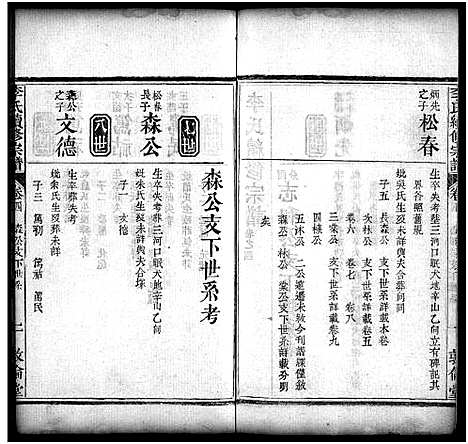 李氏續修宗譜
卷四
敦倫堂
炳先之子
松春
生卒失考葬三河口眠犬地辛山乙向立有碑記
界合照舊規
娆吳氏生歿未詳與夫合葬同向
子五 長森公 支下世系詳載本卷
次林公 支下世系詳載卷五
卷六 卷七 卷八
三棠公 支下世系詳載卷九
四棣公
五沐公
森公 林公 棠公支下世系詳載分明
矣
森公支下世系考
七世
松春長子
森公
生卒失考葬三河口眠犬地辛山乙向
娆朱氏生歿未詳與夫合塚
子 文德
八世
森公之子
文德
生卒葬失考
娆余氏生歿葬未詳
子三 萬朝 萬祜
李氏續修宗譜
卷四
森公支下世系
二
敦倫堂